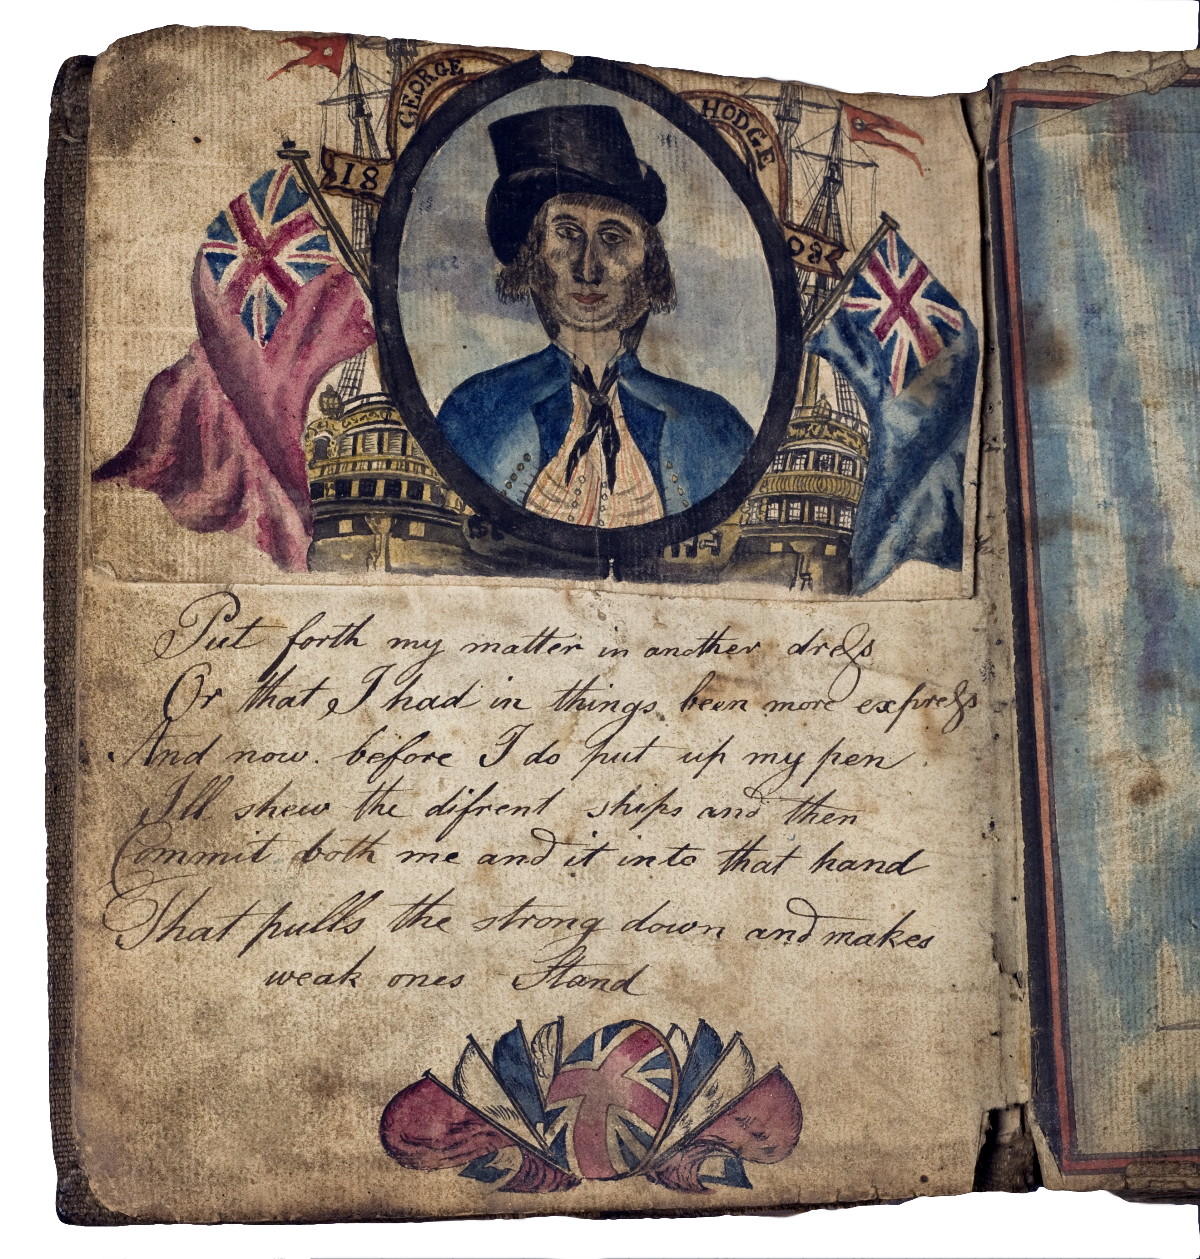 GEORGE HODGE
18 08
Put forth my matter in another dress
Or that I had in things been more express
And now. before I do put up my pen
Ill shew the difrent ships and then
Commit both me and it into that hand
That pulls the strong down and makes
weak ones Stand